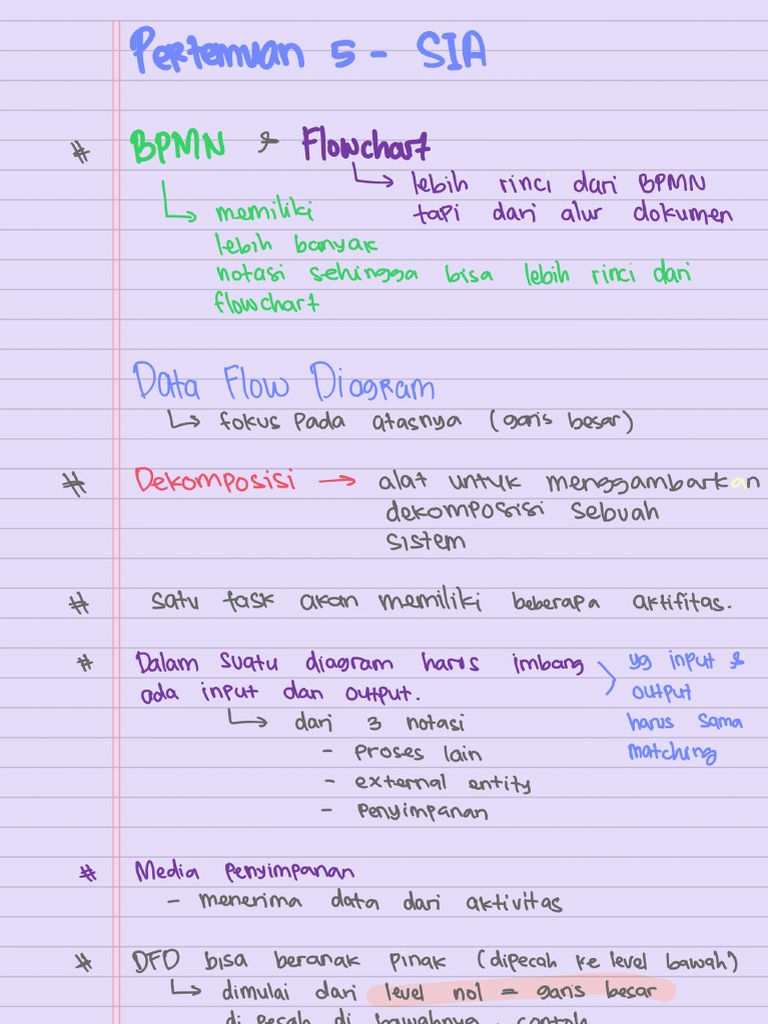 Pertemuan 5 - SIA
# BPMN & Flowchart
↳ lebih rinci dari BPMN
tapi dari alur dokumen
↳ memiliki
lebih banyak
notasi sehingga bisa lebih rinci dari
flowchart
Data Flow Diagram
↳ fokus pada atasnya (garis besar)
# Dekomposisi → alat untuk menggambarkan
dekomposisi sebuah
sistem
# satu task akan memiliki beberapa aktifitas.
# Dalam suatu diagram harus imbang
ada input dan output.
yg input &
output
harus sama
matching
↳ dari 3 notasi
- proses lain
- external entity
- penyimpanan
# Media penyimpanan
- menerima data dari aktivitas
# DFD bisa beranak pinak (dipecah ke level bawah²)
↳ dimulai dari level nol = garis besar
di pecah di bawahnya, contoh